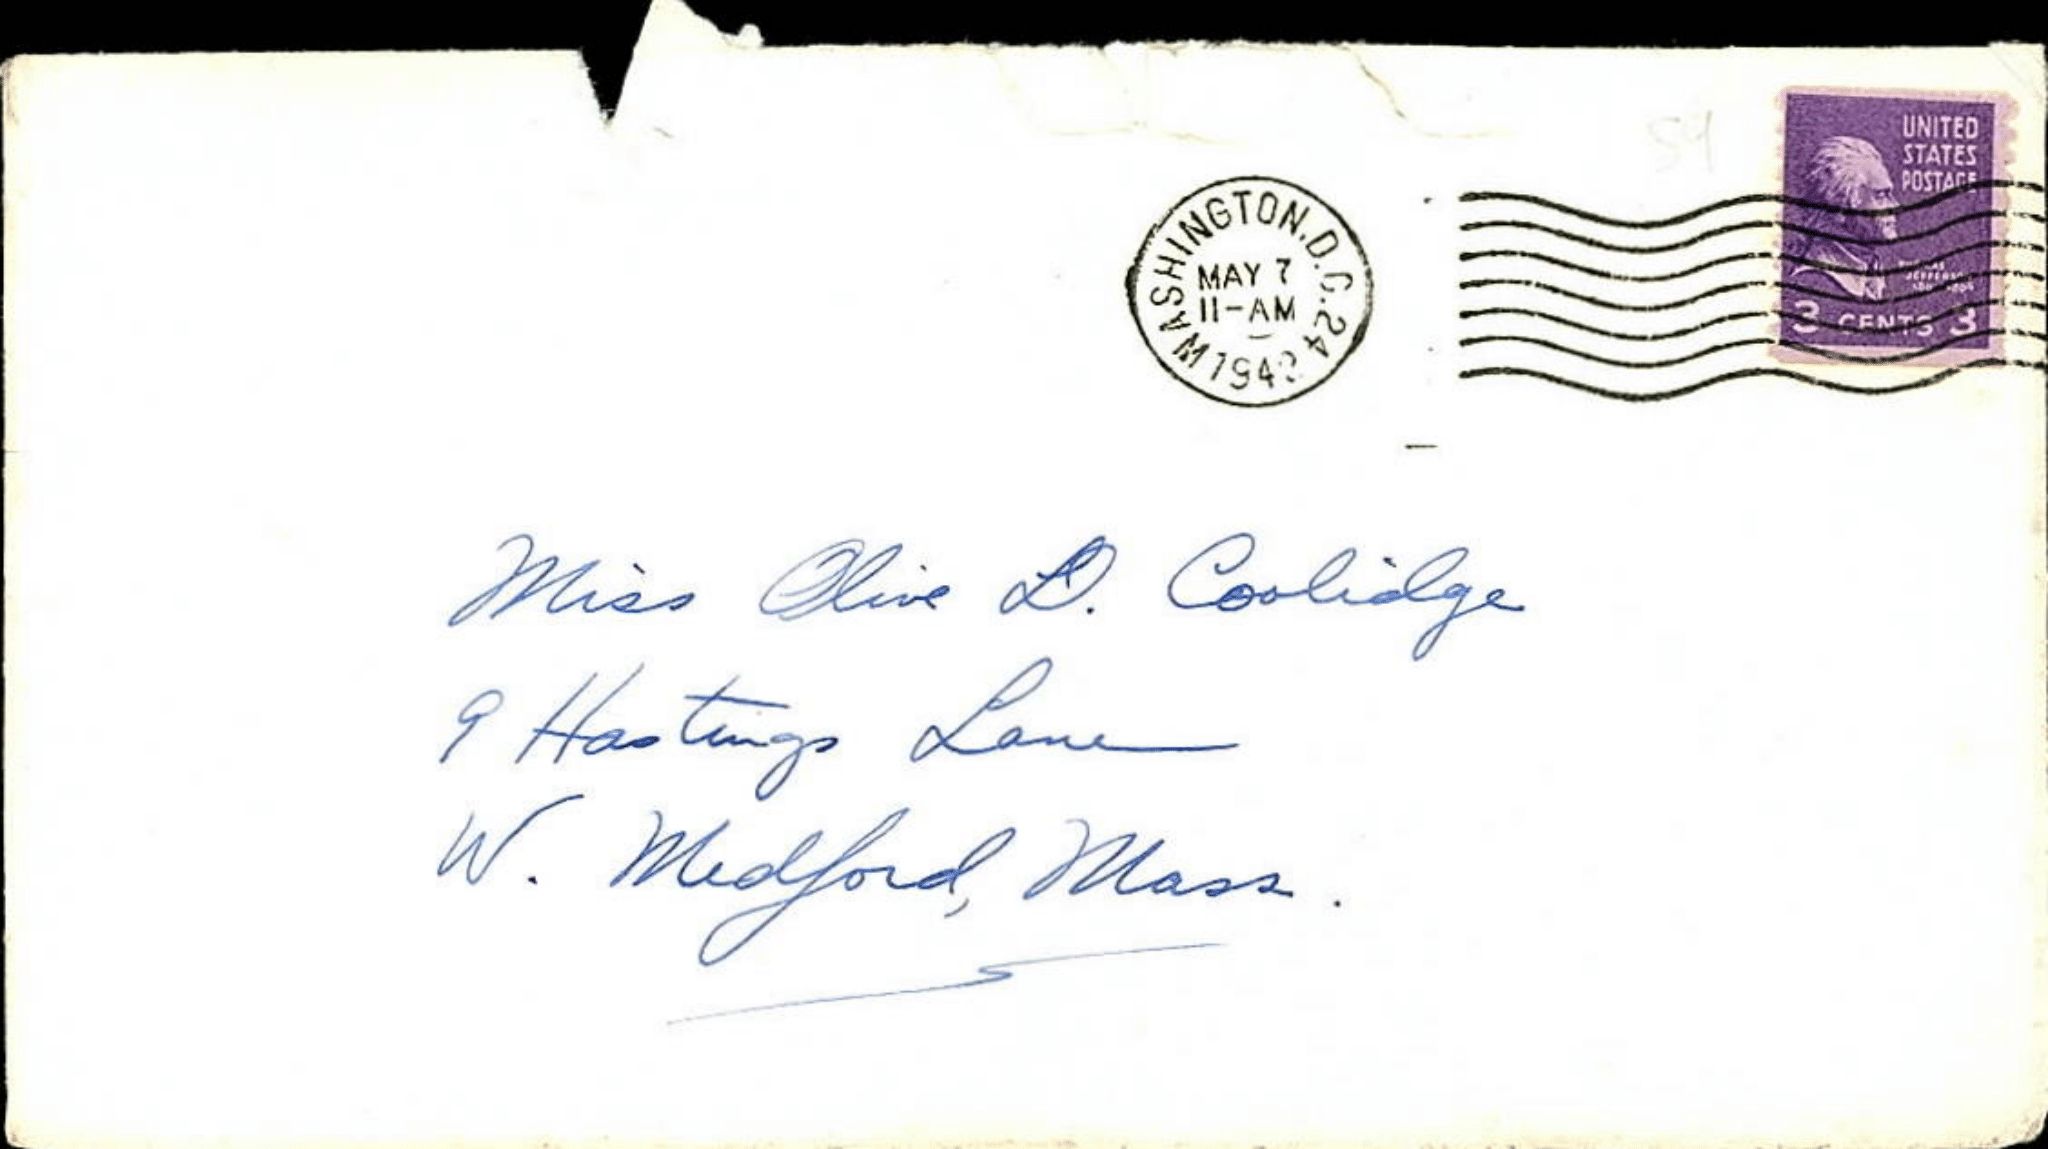 54
UNITED
STATES
POSTAGE
WASHINGTON, D.C. 24
MAY 7
11-AM
THOMAS
JEFFERSON
3 CENTS 3
Miss Olive D. Coolidge
9 Hastings Lane
W. Medford, Mass.